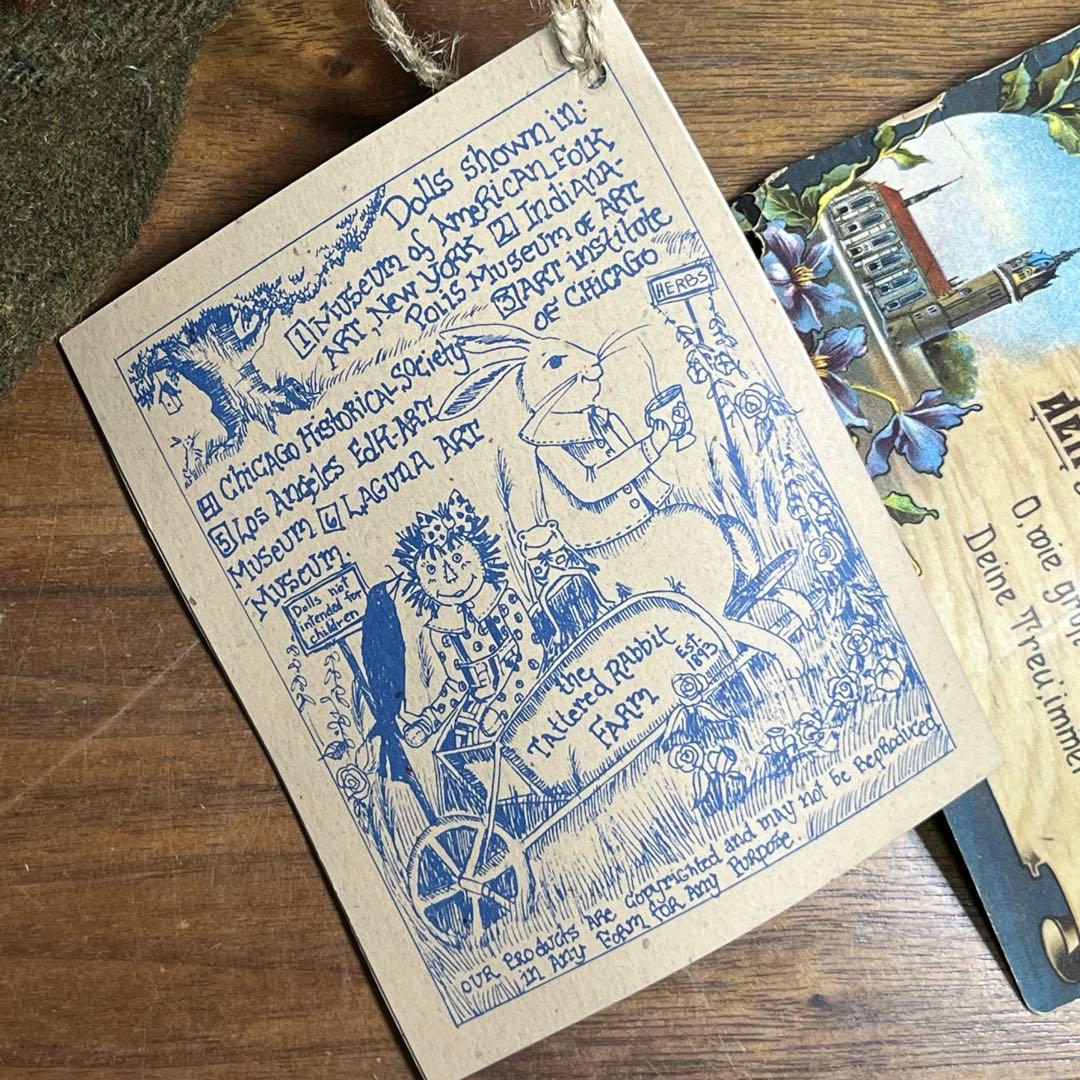 Dolls shown in:
[1] Museum of American Folk
Art, New York [2] Indiana-
polis Museum of Art
[3] Art institute
of Chicago
[4] Chicago Historical Society
[5] Los Angeles Edk-Art
Museum [6] Laguma Art
Museum.
HERBS
Dolls not
intended for
children
the
Tattered Rabbit
Farm
Est.
1893
Our Products Are Copyrighted and may not be Reproduced
in Any Form for Any Purpose.
O, wie
Deine Treu, immer